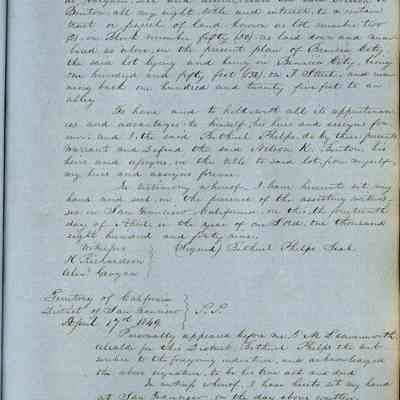 Benton all my right title and interest in a certain
tract or parcel of land known as lot number two
(2) in Block number fifty (50) as laid down and num
bered as above, on the present plan of Benicia City
the said lot lying and being in Benicia City, being
one hundred and fifty feet (150) on I Street, and run
ning back one hundred and twenty five feet to an
alley
To have and to hold with all its appurtenan
ces and advantages to himself, his heirs and assigns for
ever, and I, the said Bethuel Phelps do by these presents
warrant and defend the said Nelson K. Benton, his
heirs and assigns, in the title to said lot, from myself,
my heirs and assigns forever.
In testimony whereof I have hereunto set my
hand and seal, in the presence of the assisting witnes
ses in San Francisco California, on this the fourteenth
day of April, in the year of our Lord, one thousand
eight hundred and forty nine.
Witnesses } (Signed) Bethuel Phelps Seal
K Richardson
Territory of California
District of San Francisco } S.S.
April 17th 1849
Personally appeared before me T. M. Leavenworth
Alcalde for this District, Bethuel Phelps the sub
scriber to the foregoing indenture, and acknowledged
the above signature to be his true act and deed
In witness whereof, I have hereto set my hand
at San Francisco, on the day above written.